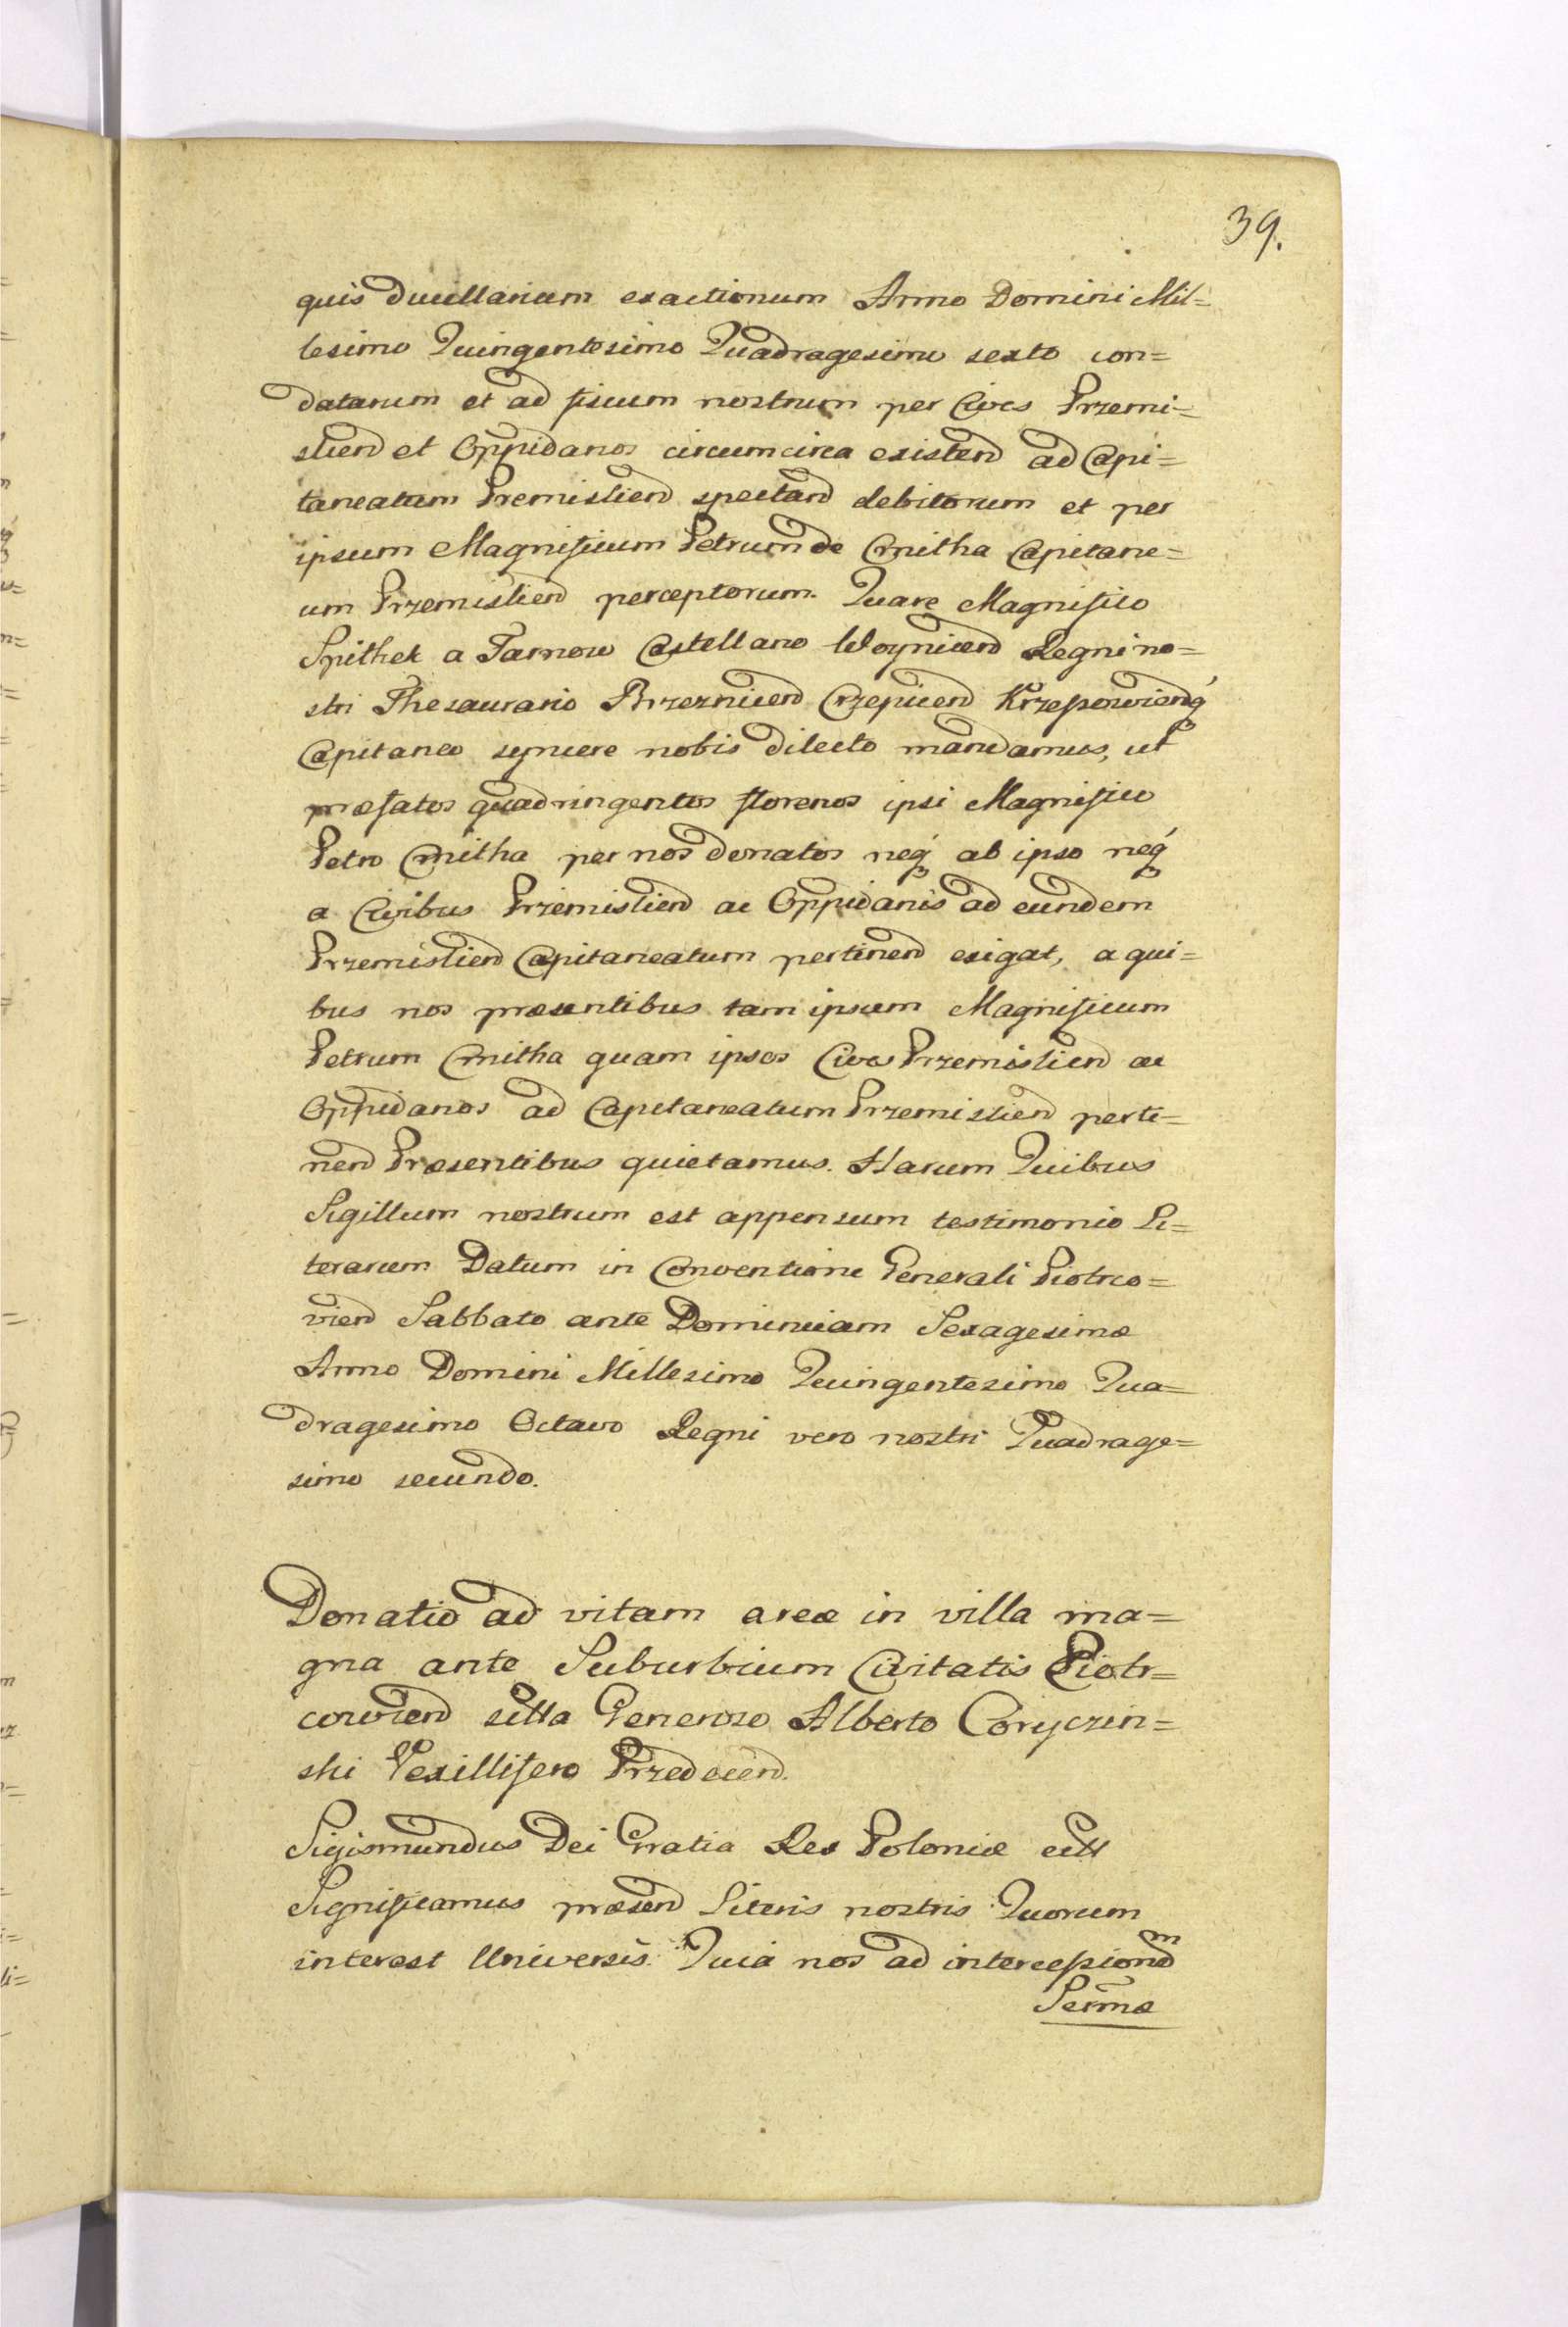 39.
quis Ducillarum exactionum Anno Domini Mil=
lesimo Quingentesimo Quadragesimo sexto con=
datarum et ad fiscum nostrum per Cives Przemi=
slien et Oppidanos circumcirca existen ad Capi=
taneatum Premislien spectan debitorum et per
ipsum Magnificum Petrum de Cmitha Capitane=
um Przemislien perceptorum. Quare Magnifico
Spithek a Tarnow Castellano Woynicen Regni no=
stri Thesaurario Brzeznicen Crzepicen Krzepowienq́
Capitaneo syncere nobis dilecto mandamus, ut
præfatos quadringentos florenos ipsi Magnifico
Petro Cmitha per nos donatos neq́ ab ipso neq́
a Civibus Przemislien ac Oppidanis ad eundem
Przemislien Capitaneatum pertinen exigat, a qui=
bus nos præsentibus tam ipsum Magnificum
Petrum Cmitha quam ipsos Cives Przemislien ac
Oppidanos ad Capitaneatum Przemislien perti=
nen Præsentibus quietamus. Harum Quibus
Sigillum nostrum est appensum testimonio Li=
terarum Datum in Conventione Generali Piotrco=
vien Sabbato ante Dominicam Sexagesimæ
Anno Domini Millesimo Quingentesimo Qua=
dragesimo Octavo Regni vero nostri Quadrage=
simo secundo.
Donatio ad vitam areæ in villa ma=
gna ante Suburbium Civitatis Piotr=
covien sitta Generoso Alberto Coryczin=
ski Vexillifero Przedecen.
Sigismundus Dei Gratia Rex Poloniæ ett
Significamus præsen Literis nostris Quorum
interest Universis. Quia nos ad intercessionem
Serm̃æ